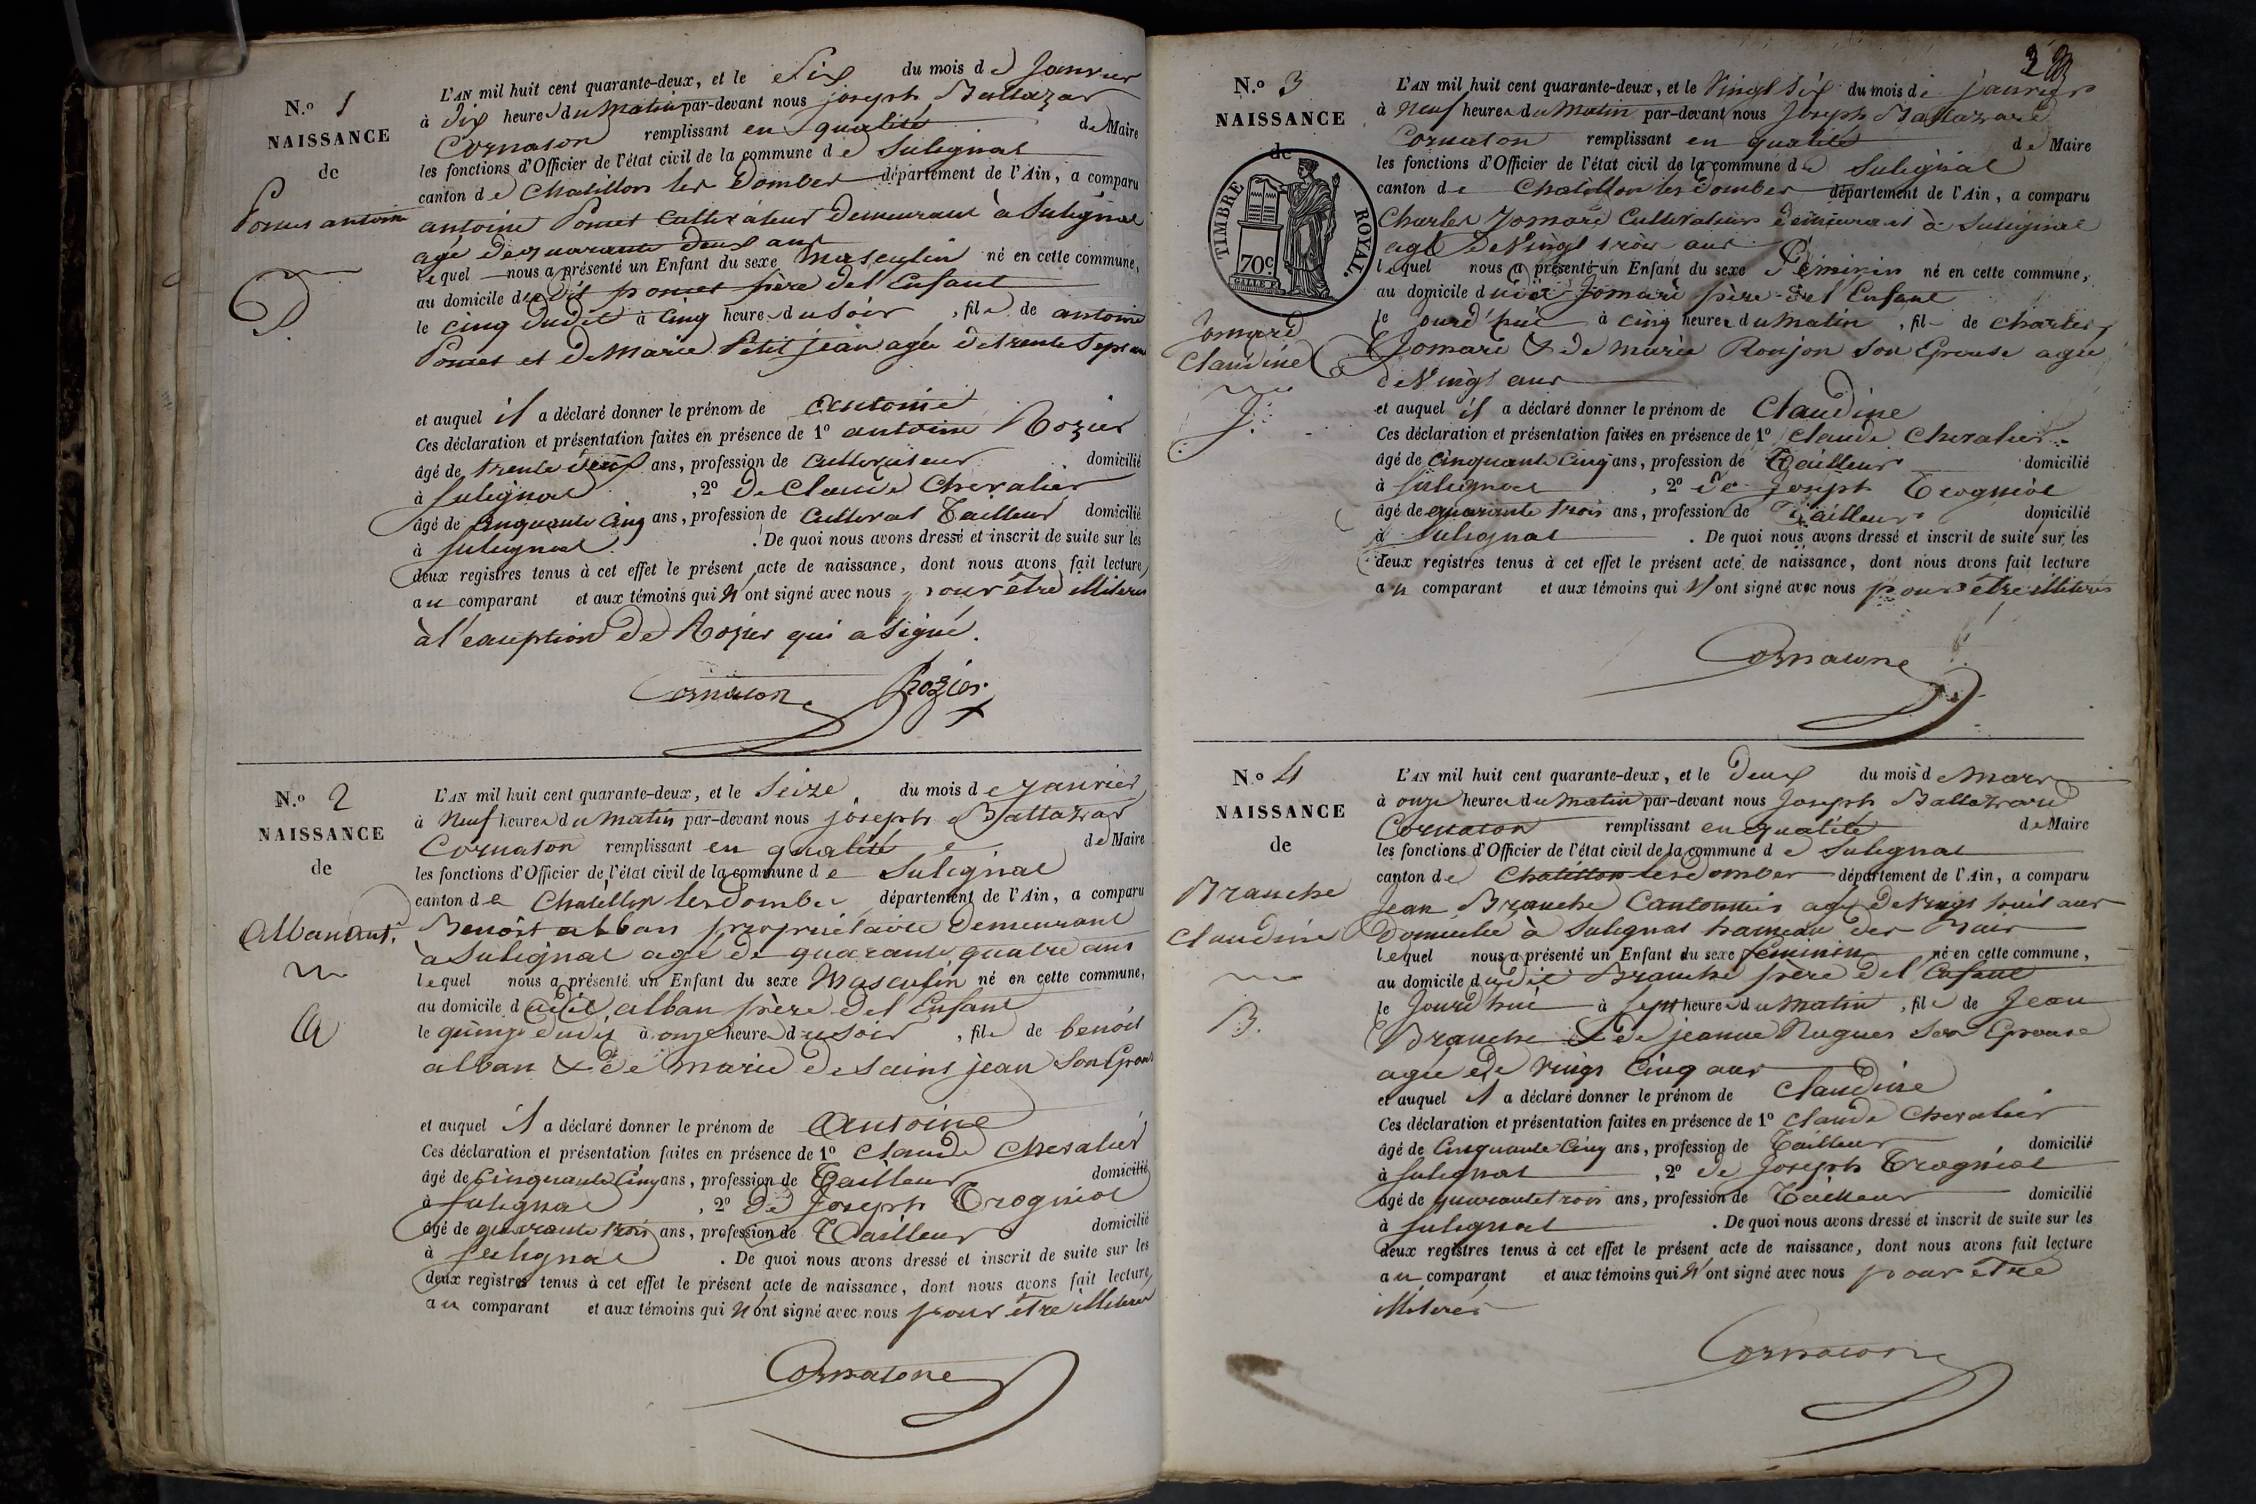 N.o 1
NAISSANCE
de
Poncet antoine
P.
L'AN mil huit cent quarante-deux, et le Six du mois de Janvier
à dix heures du Matin par-devant nous joseph Baltazar
Cornaton remplissant en qualité de Maire
les fonctions d'Officier de l'état civil de la commune de Sulignat
canton de Chatillon les Dombes département de l'Ain, a comparu
antoine Poncet cultivateur demeurant à Sulignat
agé de quarante deux ans
lequel nous a présenté un Enfant du sexe Masculin né en cette commune,
au domicile dudit poncet père de l'Enfant
le cinq dudit à cinq heures du soir, fils de antoine
Poncet et de Marie Petit jean agée de trente Sept ans
et auquel il a déclaré donner le prénom de antoine
Ces déclaration et présentation faites en présence de 1o antoine Rozier
âgé de trente deux ans, profession de cultivateur domicilié
à Sulignat, 2o de Claude Chevalier
âgé de cinquante cinq ans, profession de cultivat Tailleur domicilié
à Sulignat. De quoi nous avons dressé et inscrit de suite sur les
deux registres tenus à cet effet le présent acte de naissance, dont nous avons fait lecture
au comparant et aux témoins qui N'ont signé avec nous pour être illiterés
à l'exeption de Rozier qui a signé.
Cornaton Rozier
N.o 2
NAISSANCE
de
Alban ant.
A
L'AN mil huit cent quarante-deux, et le Seize du mois de Janvier
à Neuf heures du Matin par-devant nous joseph Baltazar
Cornaton remplissant en qualité de Maire
les fonctions d'Officier de l'état civil de la commune de Sulignat
canton de Chatillon les dombes département de l'Ain, a comparu
Benoit alban propriétaire demeurant
à Sulignat agé de quarante quatre ans
lequel nous a présenté un Enfant du sexe Masculin né en cette commune,
au domicile dudit alban père de l'Enfant
le quinze dudit à onze heures du soir, fils de benoit
alban & de marie de saint jean son Epouse
et auquel il a déclaré donner le prénom de Antoine
Ces déclaration et présentation faites en présence de 1o Claude Chevalier
âgé de Cinquante Cinq ans, profession de Tailleur domicilié
à Sulignat, 2o de Joseph Trogniot
âgé de quarante trois ans, profession de Tailleur domicilié
à Sulignat. De quoi nous avons dressé et inscrit de suite sur les
deux registres tenus à cet effet le présent acte de naissance, dont nous avons fait lecture
au comparant et aux témoins qui N'ont signé avec nous pour être illiterés
Cornaton
N.o 3
NAISSANCE
de
TIMBRE ROYAL.
70c
Jomard
Claudine
J.
L'AN mil huit cent quarante-deux, et le Vingt Six du mois de janvier
à Neuf heures du Matin par-devant nous Joseph Baltazard
Cornaton remplissant en qualité de Maire
les fonctions d'Officier de l'état civil de la commune de Sulignat
canton de Chatillon les dombes département de l'Ain, a comparu
Charles Jomard Cultivateur demeurant à Sulignat
agé de Vingt trois ans
lequel nous a présenté un Enfant du sexe Féminin né en cette commune,
au domicile dudit Jomard père de l'Enfant
le jourd'hui à cinq heures du Matin, fil de Charles
Jomard & de marie Ronjon son Epouse agée
de Vingt ans
et auquel il a déclaré donner le prénom de Claudine
Ces déclaration et présentation faites en présence de 1o Claude Chevalier
âgé de Cinquante Cinq ans, profession de Tailleur domicilié
à Sulignat, 2o de Joseph Trogniot
âgé de quarante trois ans, profession de Tailleur domicilié
à Sulignat. De quoi nous avons dressé et inscrit de suite sur les
deux registres tenus à cet effet le présent acte de naissance, dont nous avons fait lecture
au comparant et aux témoins qui N'ont signé avec nous pour être illiterés
Cornaton
N.o 4
NAISSANCE
de
Branche
Claudine
B.
L'AN mil huit cent quarante-deux, et le deux du mois de Mars
à onze heures du Matin par-devant nous Joseph Baltazard
Cornaton remplissant en qualité de Maire
les fonctions d'Officier de l'état civil de la commune de Sulignat
canton de Chatillon les dombes département de l'Ain, a comparu
Jean Branche Cantonnier agé de vingt huit ans
Domicilié à Sulignat hameau des
lequel nous a présenté un Enfant du sexe féminin né en cette commune,
au domicile dudit Branche père de l'Enfant
le Jourd'hui à sept heures du Matin, file de Jean
Branche & de jeanne Nugues son Epouse
agée de vingt Cinq ans
et auquel il a déclaré donner le prénom de Claudine
Ces déclaration et présentation faites en présence de 1o Claude Chevalier
âgé de Cinquante Cinq ans, profession de Tailleur domicilié
à Sulignat, 2o de Joseph Trogniot
âgé de quarante trois ans, profession de Tailleur domicilié
à Sulignat. De quoi nous avons dressé et inscrit de suite sur les
deux registres tenus à cet effet le présent acte de naissance, dont nous avons fait lecture
au comparant et aux témoins qui N'ont signé avec nous pour être
illiterés
Cornaton